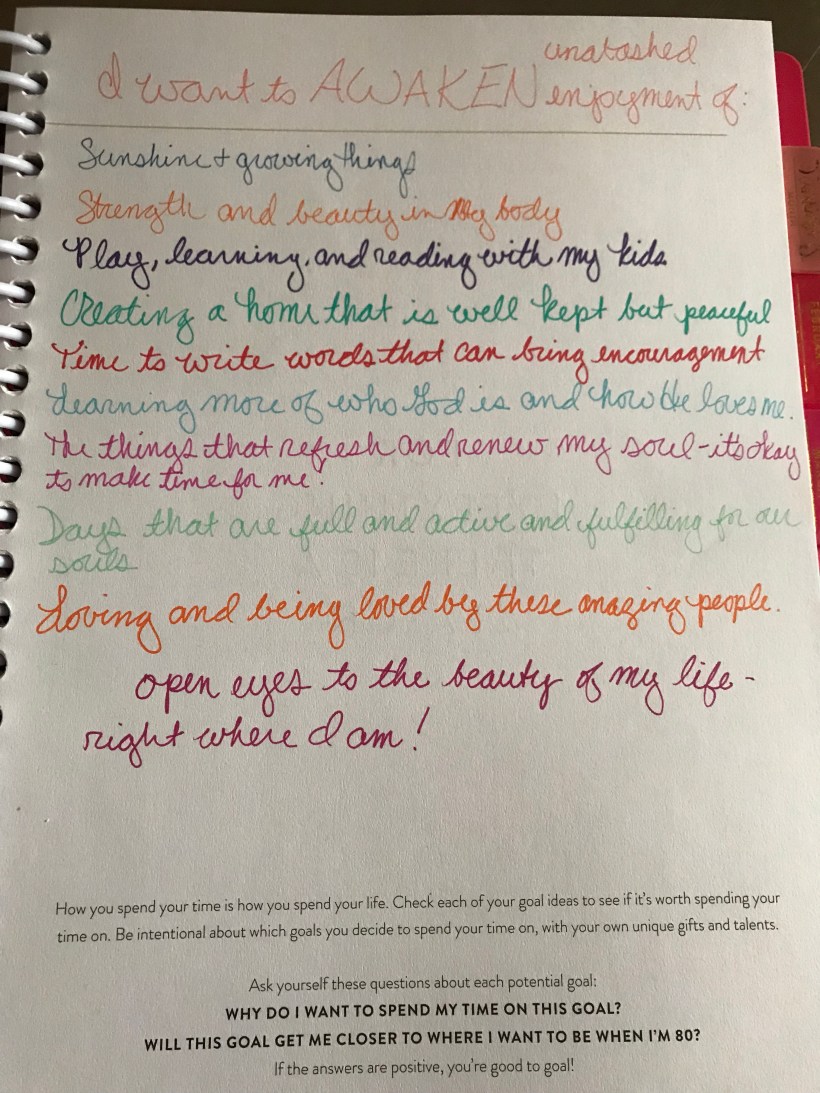 unabashed
I want to AWAKEN enjoyment of:
Sunshine + growing things
Strength and beauty in my body
Play, learning, and reading with my kids
Creating a home that is well kept but peaceful
Time to write words that can bring encouragement
Learning more of who God is and how He loves me.
The things that refresh and renew my soul - it's okay
to make time for me!
Days that are full and active and fulfilling for our
souls
Loving and being loved by these amazing people.
open eyes to the beauty of my life -
right where I am!
How you spend your time is how you spend your life. Check each of your goal ideas to see if it's worth spending your
time on. Be intentional about which goals you decide to spend your time on, with your own unique gifts and talents.
Ask yourself these questions about each potential goal:
WHY DO I WANT TO SPEND MY TIME ON THIS GOAL?
WILL THIS GOAL GET ME CLOSER TO WHERE I WANT TO BE WHEN I'M 80?
If the answers are positive, you're good to goal!